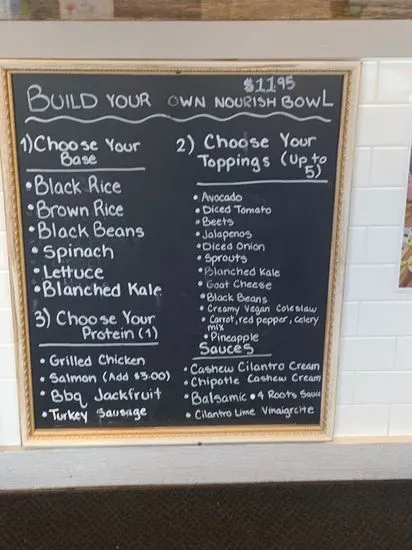 $11.95
BUILD YOUR OWN NOURISH BOWL
1) Choose Your
Base
• Black Rice
• Brown Rice
• Black Beans
• Spinach
• Lettuce
• Blanched Kale
3) Choose Your
Protein (1)
• Grilled Chicken
• Salmon (Add $3.00)
• Bbq Jackfruit
• Turkey Sausage
2) Choose Your
Toppings (Up to
5)
• Avocado
• Diced Tomato
• Beets
• Jalapenos
• Diced Onion
• Sprouts
• Blanched Kale
• Goat Cheese
• Black Beans
• Creamy Vegan Coleslaw
• Carrot, red pepper, celery
mix
• Pineapple
Sauces
• Cashew Cilantro Cream
• Chipotle Cashew Cream
• Balsamic • 4 Roots Sauce
• Cilantro Lime Vinaigrcite